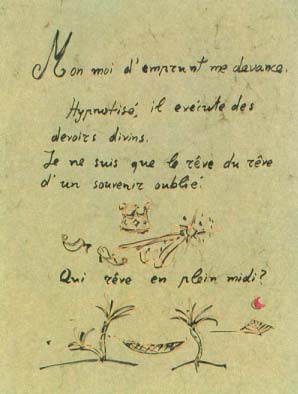 Mon moi d'emprunt me devance.
Hypnotisé, il exécute des
devoirs divins.
Je ne suis que le rêve du rêve
d'un souvenir oublié.
Qui rêve en plein midi?